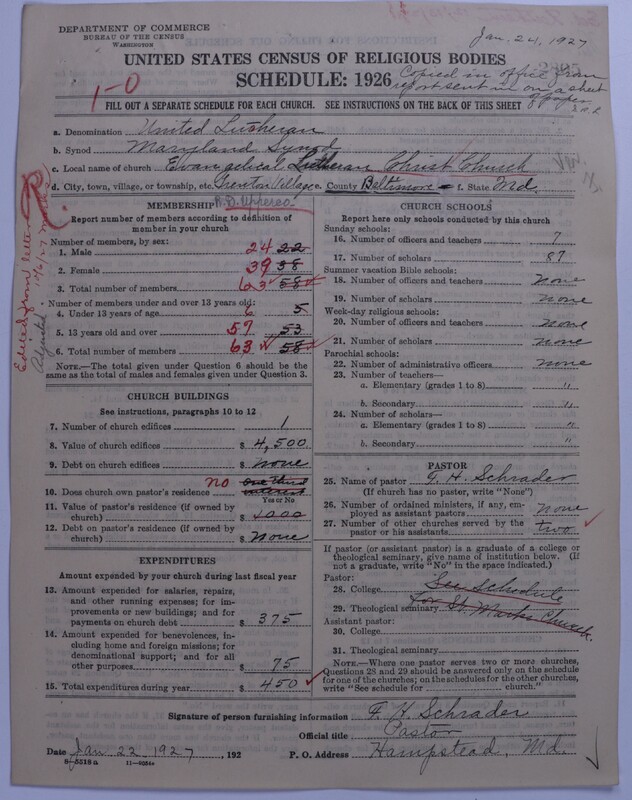 DEPARTMENT OF COMMERCE
BUREAU OF THE CENSUS
WASHINGTON
Jan. 24, 1927
UNITED STATES CENSUS OF RELIGIOUS BODIES
SCHEDULE: 1926
Copied in office from
report sent in on a sheet
of paper
1-0
FILL OUT A SEPARATE SCHEDULE FOR EACH CHURCH. SEE INSTRUCTIONS ON THE BACK OF THIS SHEET
a. Denomination United Lutheran
b. Synod Maryland Synod
c. Local name of church Evangelical Lutheran Christ Church
d. City, town, village, or township, etc. Trenton Village e. County Baltimore f. State Md.
R.D. Upperco
Edited from letter
Adjusted
MEMBERSHIP
Report number of members according to definition of
member in your church
Number of members, by sex:
1. Male 24 22
2. Female 39 38
3. Total number of members 63 58
Number of members under and over 13 years old:
4. Under 13 years of age 6 5
5. 13 years old and over 57 53
6. Total number of members 63 58
NOTE.—The total given under Question 6 should be
the same as the total of males and females given under Question 3.
CHURCH BUILDINGS
See instructions, paragraphs 10 to 12
7. Number of church edifices 1
8. Value of church edifices $ 4,500
9. Debt on church edifices $ None
10. Does church own pastor's residence no one third interest
Yes or No
11. Value of pastor's residence (if owned by
church) $ 4000
12. Debt on pastor's residence (if owned by
church) $ None
EXPENDITURES
Amount expended by your church during last fiscal year
13. Amount expended for salaries, repairs,
and other running expenses; for im-
provements or new buildings; and for
payments on church debt $ 375
14. Amount expended for benevolences, in-
cluding home and foreign missions; for
denominational support; and for all
other purposes $ 75
15. Total expenditures during year $ 450
CHURCH SCHOOLS
Report here only schools conducted by this church
Sunday schools:
16. Number of officers and teachers 7
17. Number of scholars 87
Summer vacation Bible schools:
18. Number of officers and teachers none
19. Number of scholars none
Week-day religious schools:
20. Number of officers and teachers none
21. Number of scholars none
Parochial schools:
22. Number of administrative officers none
23. Number of teachers—
a. Elementary (grades 1 to 8) "
b. Secondary "
24. Number of scholars—
a. Elementary (grades 1 to 8) "
b. Secondary "
PASTOR
25. Name of pastor F. H. Schrader
(If church has no pastor, write "None")
26. Number of ordained ministers, if any, em-
ployed as assistant pastors none
27. Number of other churches served by the
pastor or his assistants two
If pastor (or assistant pastor) is a graduate of a college or
theological seminary, give name of institution below. (If
not a graduate, write "No" in the space indicated.)
Pastor:
28. College See Schedule
29. Theological seminary for St. Marks Church.
Assistant pastor:
30. College
31. Theological seminary
NOTE.—Where one pastor serves two or more churches,
Questions 28 and 29 should be answered only on the schedule
for one of the churches; on the schedules for the other churches,
write "See schedule for church."
Signature of person furnishing information F. H. Schrader
Official title Pastor
Date Jan 22, 1927, 192 P. O. Address Hampstead, Md.
8-5518a 11-9584